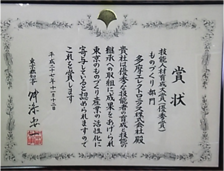 賞状
技能人材育成大賞(優秀賞)
ものづくり部門
多摩エレクトロニクス株式会社殿
貴社は優秀な技能者の育成と技能
継承への取組に成果をあげられ
東京のものづくり産業の活性化に
寄与していると認められますので
これを賞します
平成二十七年十一月十八日
東京都知事 舛添要一